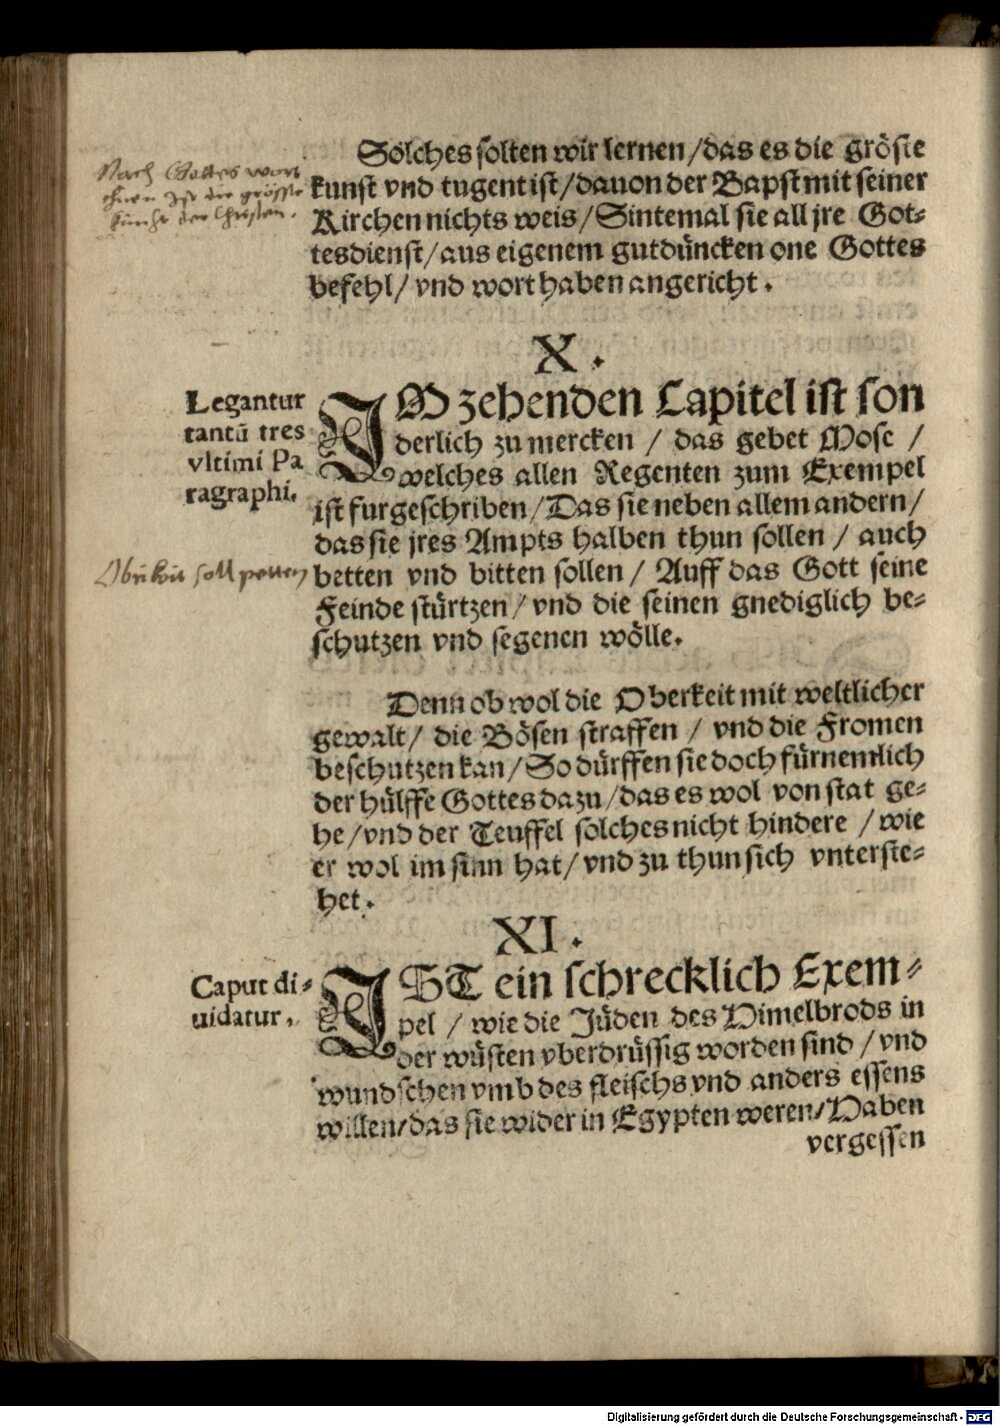 Nach Gottes wort
thuen Ist die gröste
kunst der Christen.
Solches solten wir lernen/das es die gröste
kunst vnd tugent ist/dauon der Bapst mit seiner
Kirchen nichts weis/Sintemal sie all jre Got⸗
tesdienst/aus eigenem gutdüncken one Gottes
befehl/ vnd wort haben angericht.
X.
Legantur
tantū tres
vltimi Pa
ragraphi.
IM zehenden Capitel ist son
derlich zu mercken / das gebet Mose /
welches allen Regenten zum Exempel
ist furgeschriben/Das sie neben allem andern/
das sie jres Ampts halben thun sollen / auch
betten vnd bitten sollen / Auff das Gott seine
Feinde stürtzen/ vnd die seinen gnediglich be⸗
schutzen vnd segenen wölle.
soll petten
Denn ob wol die Oberkeit mit weltlicher
gewalt/ die Bösen straffen / vnd die Fromen
beschutzen kan/So dürffen sie doch fürnemlich
der hülffe Gottes dazu/das es wol von stat ge⸗
he/vnd der Teuffel solches nicht hindere / wie
er wol im sinn hat/ vnd zu thun sich vnterste⸗
het.
XI.
Caput di⸗
uidatur.
IST ein schrecklich Exem⸗
pel / wie die Jüden des Himelbrods in
der wüsten vberdrüssig worden sind / vnd
wundschen vmb des fleischs vnd anders essens
willen/das sie wider in Egypten weren/Haben
vergessen
Digitalisierung gefördert durch die Deutsche Forschungsgemeinschaft - DFG